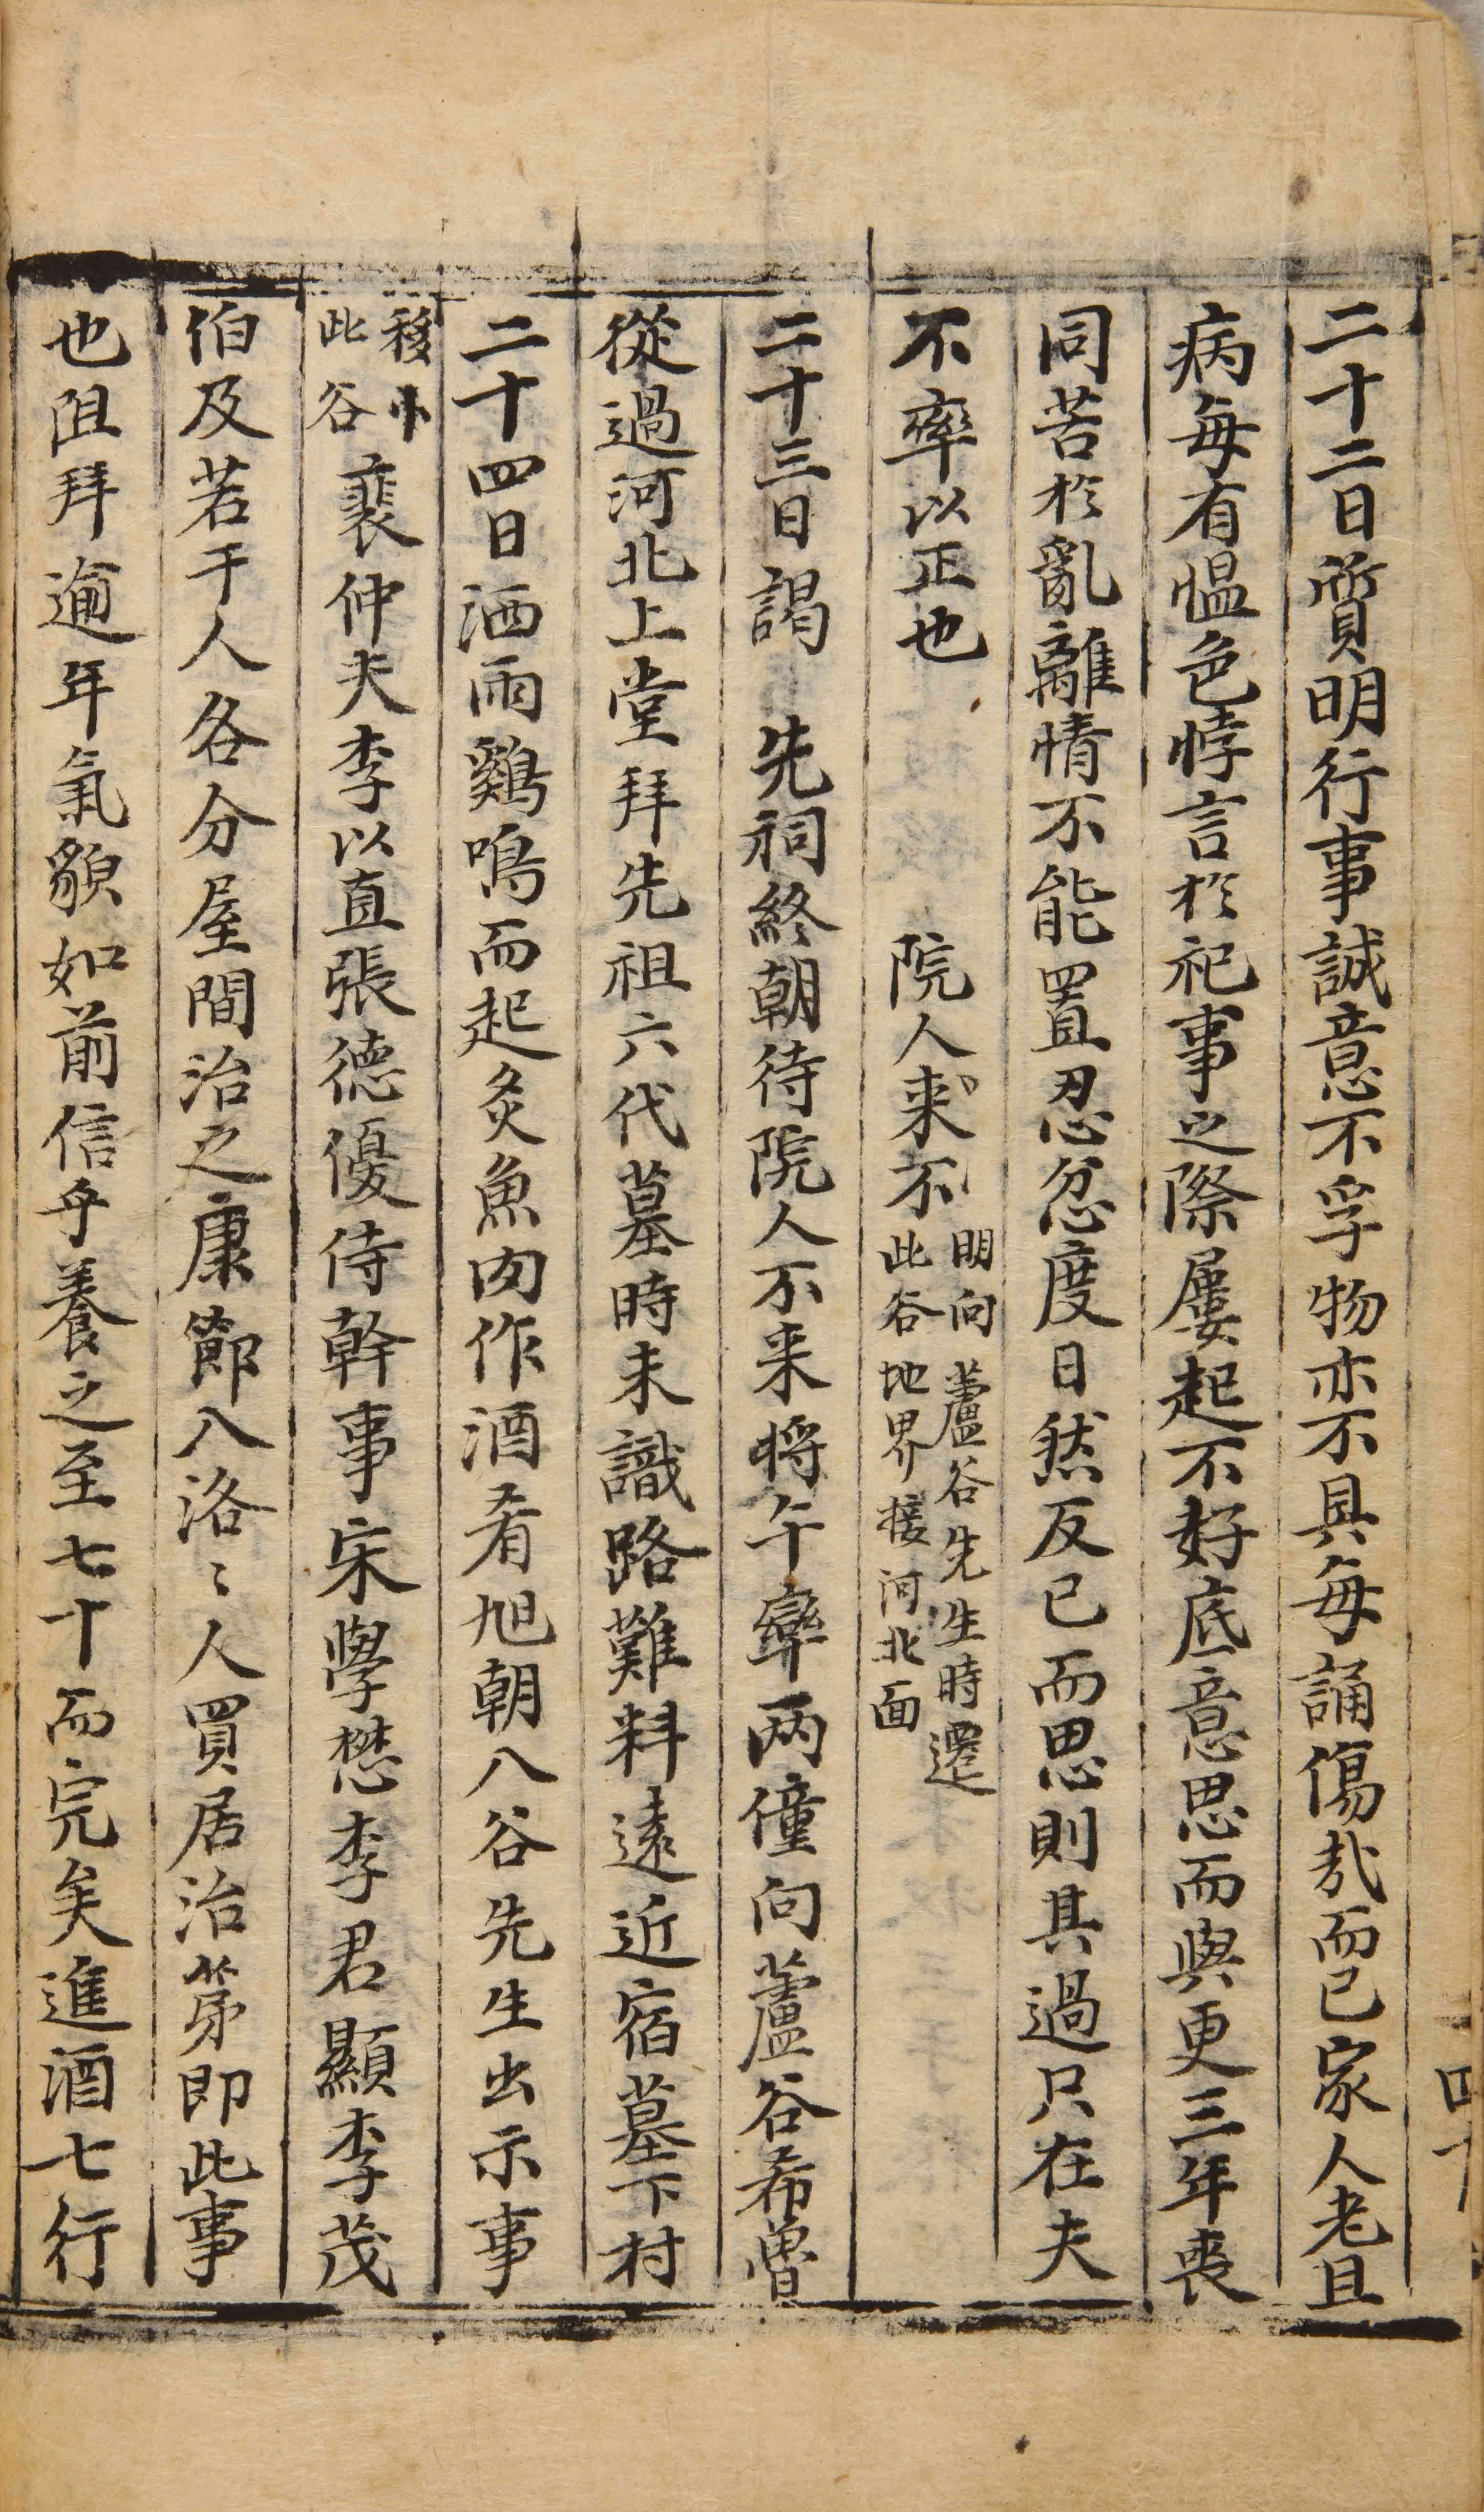 二十二日質明行事誠意不孚物亦不具每誦傷哉而已家人老且
病每有慍色悖言於祀事之際屢起不好底意思而與更三年喪
同苦於亂離情不能置忍忿度日然反已而思則其過只在夫
不率以正也　院人来不
明向蘆谷先生時遷
此谷地界接河北面
二十三日謁　先祠終朝待院人不来将午率兩僮向蘆谷希曾
從過河北上堂拜先祖六代墓時未識路難料遠近宿墓下村
二十四日洒雨鷄鳴而起炙魚肉作酒肴旭朝八谷先生出示事
移卜
此谷
裵仲夫李以直張德優侍幹事宋學懋李君顯李茂
伯及若干人各分屋間治之康節八洛〻人買居治第即此事
也咀拜逾年氣貌如前信乎養之至七十而完矣進酒七行
四十